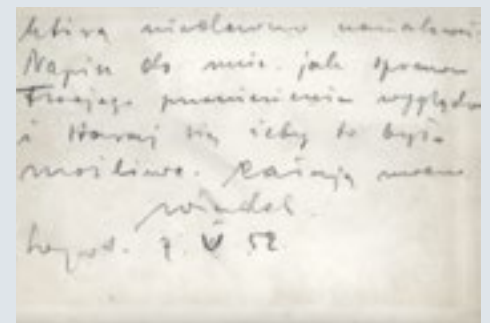 którą niedawno namalował.
Napisz do mnie jak sprawa
Twojego przeniesienia wygląda
i staraj się żeby to było
możliwe. Całuję mocno
7. V 52